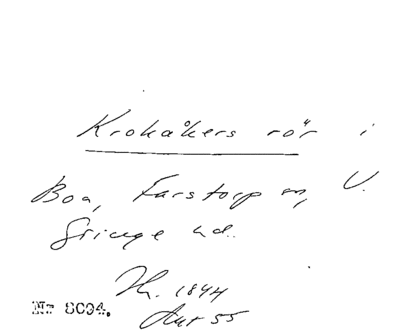 Krokåkers rör i
Boa, Farstorp sn, V.
Göinge hd.
Th. 1844
Akt 55
Nr 8094.